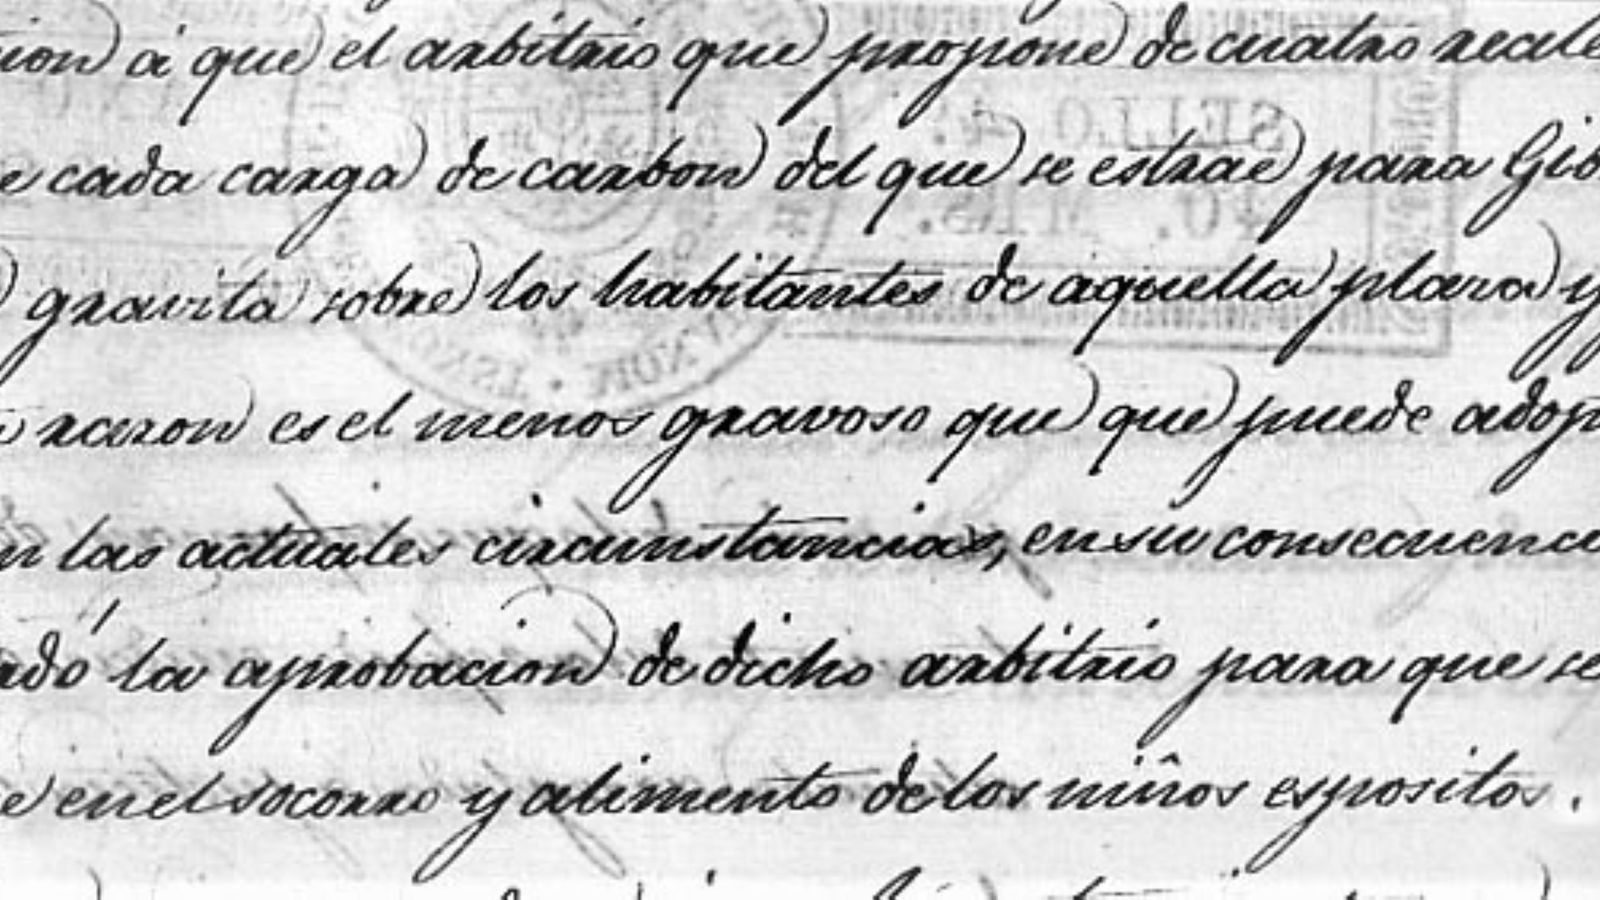 cion á que el arbitrio que propone de cuatro reale
e cada carga de carbon del que se estrae para Gib
gravita sobre los habitantes de aquella plaza y
razon es el menos gravoso que que puede adop
n las actuales circunstancias, en su consecuenci
adó la aprobacion de dicho arbitrio para que se
e en el socorro y alimento de los niños espositos.
SELLO 4.º
40. MRS.